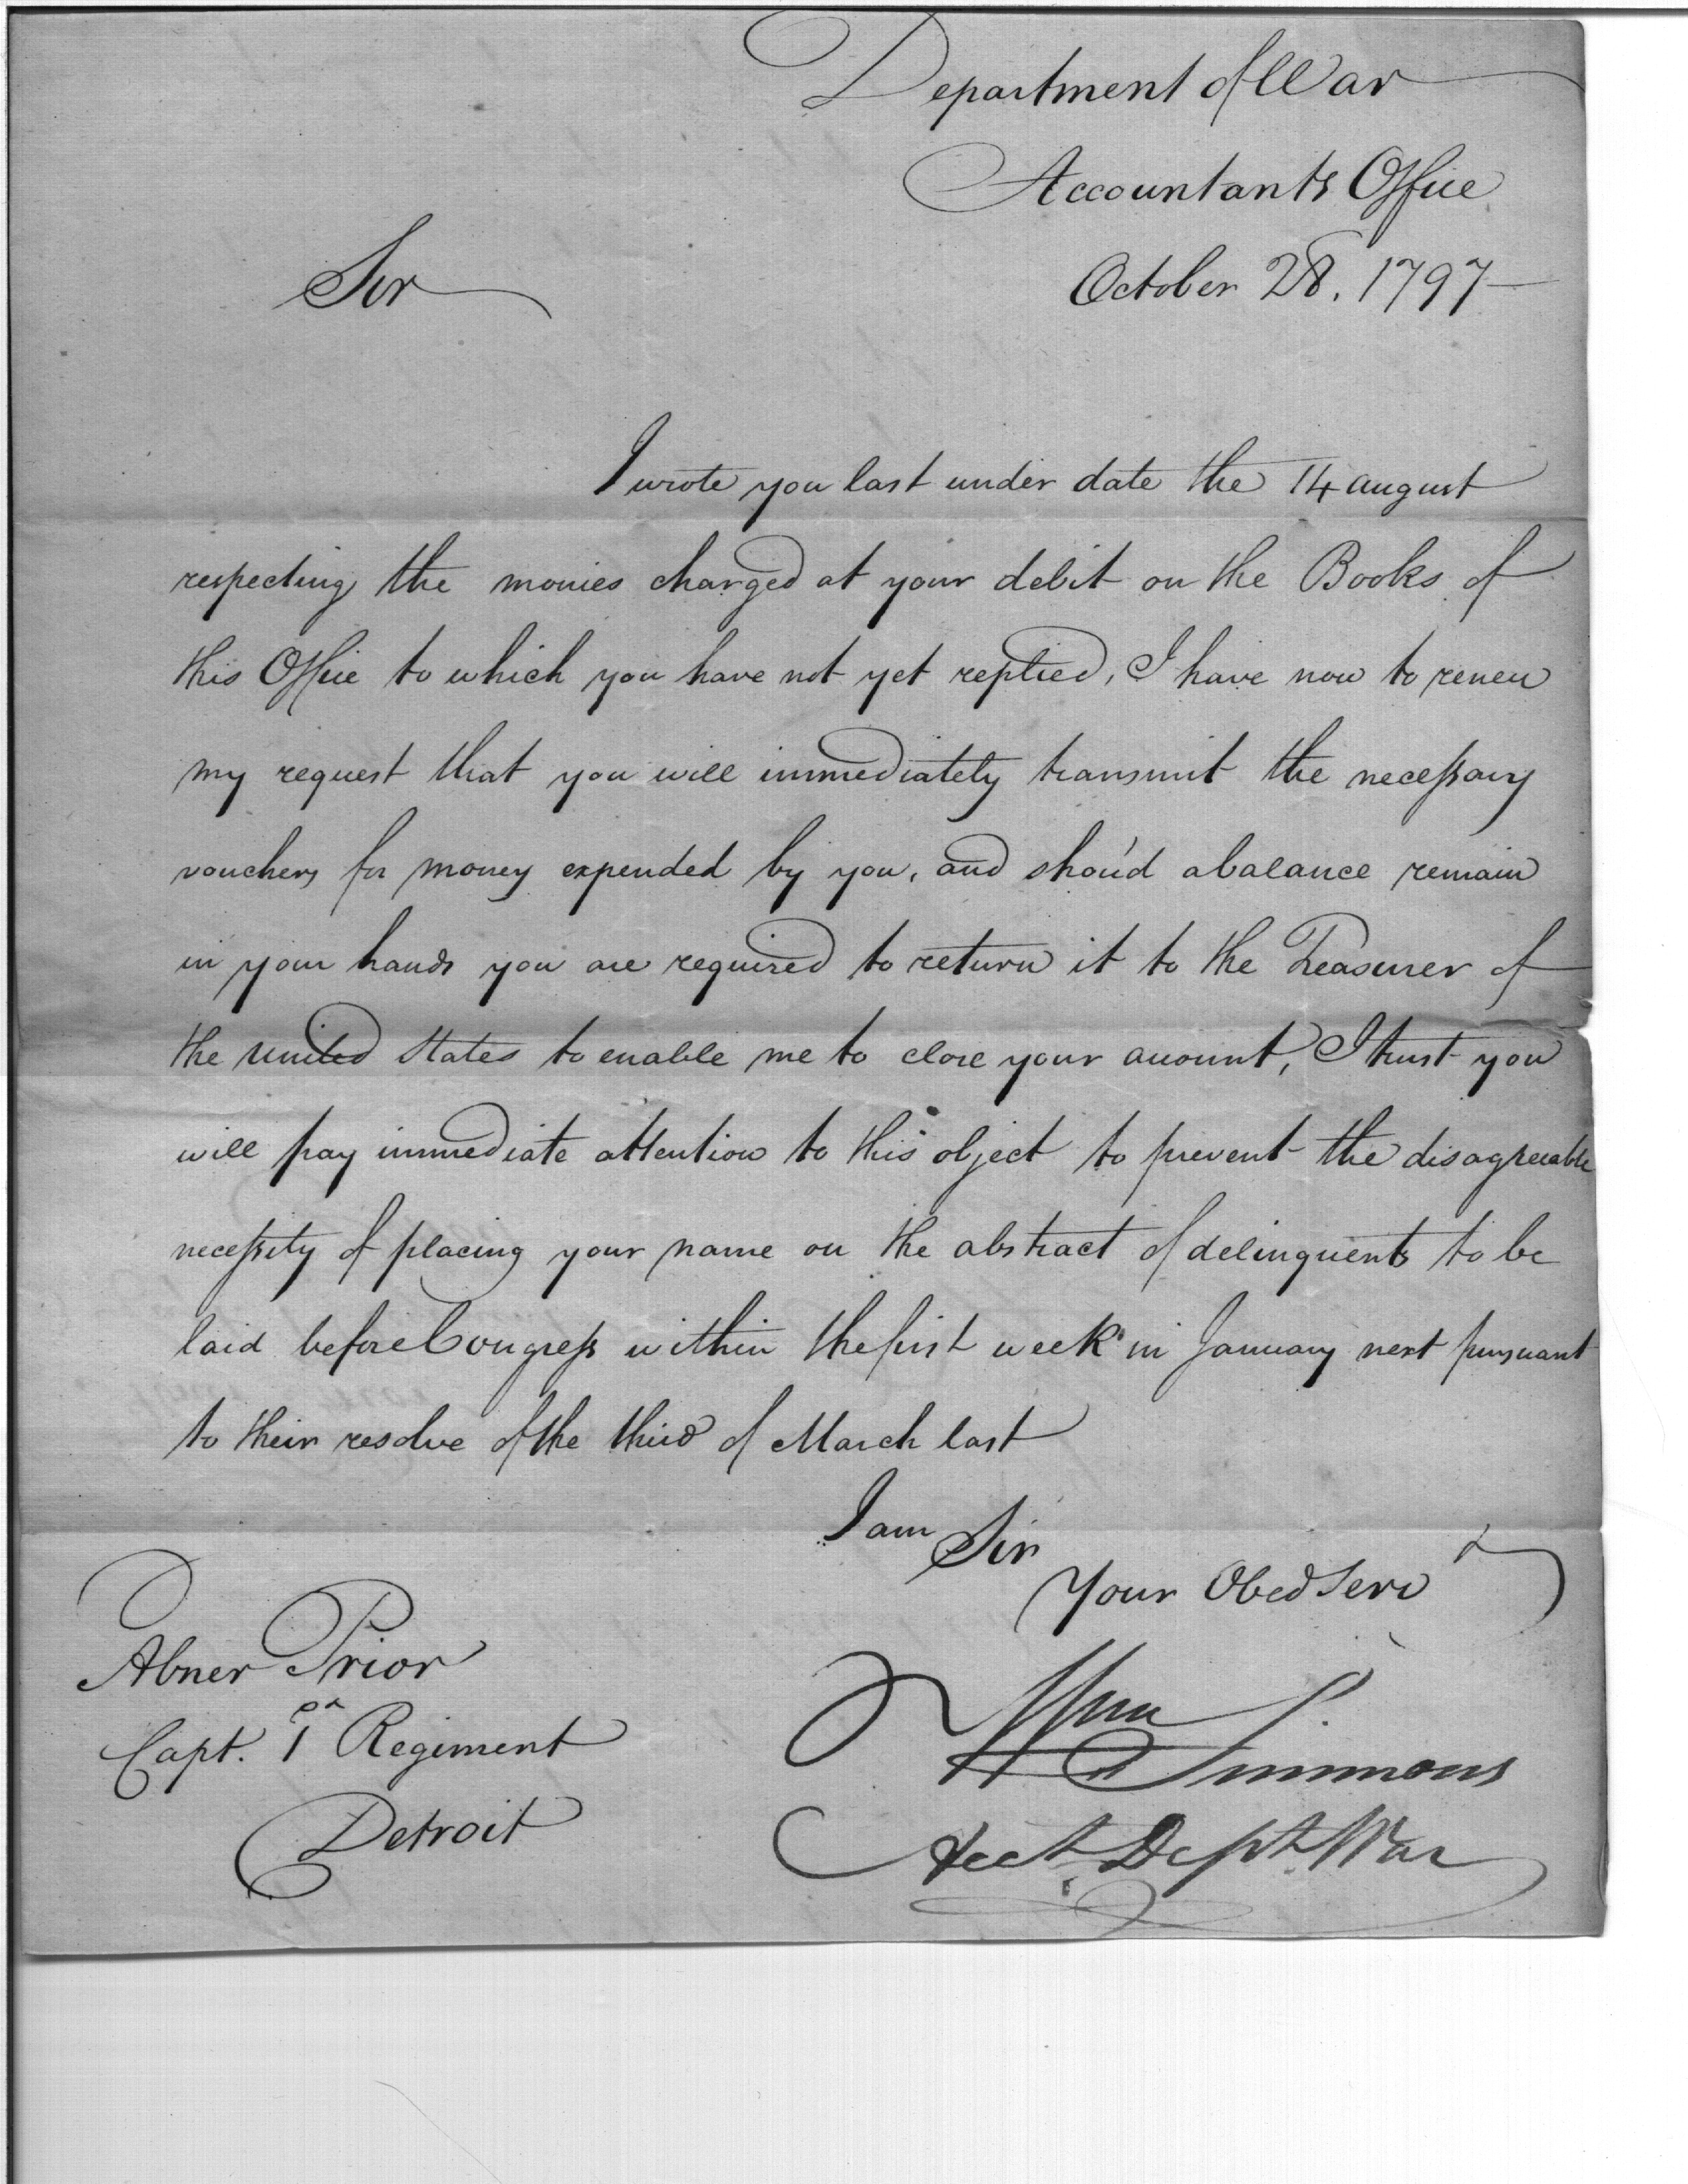 Department of War
Accountants Office
October 28. 1797
Sir
I wrote you last under date the 14 august
respecting the monies charged at your debit on the Books of
this Office to which you have not yet replied, I have now to renew
my request that you will immediately transmit the necessary
vouchers for money expended by you, and shou'd a balance remain
in your hands you are required to return it to the Treasurer of
the united States to enable me to close your account, I trust you
will pay immediate attention to this object to prevent the disagreeable
necessity of placing your name on the abstract of delinquents to be
laid before Congress within the first week in January next pursuant
to their resolve of the third of March last
I am Sir
Your Obed Servt
Wm Simmons
Acct. Dept War
Abner Prior
Capt. 1st Regiment
Detroit